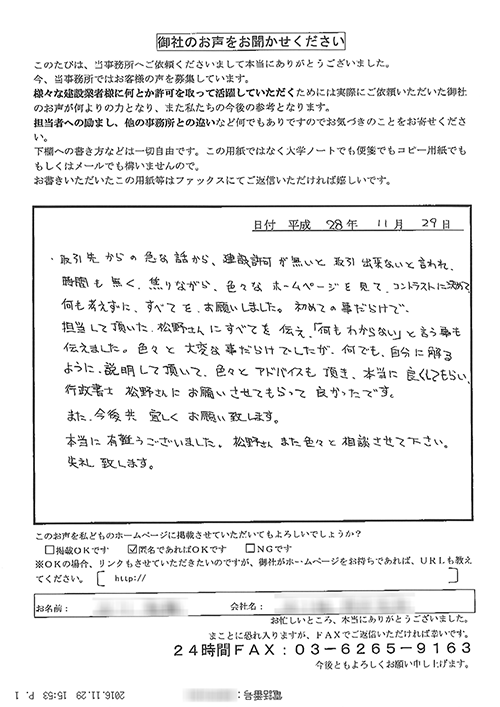 御社のお声をお聞かせください
このたびは、当事務所へご依頼くださいまして本当にありがとうございました。
今、当事務所ではお客様の声を募集しています。
様々な建設業者様に何とか許可を取って活躍していただくためには実際にご依頼いただいた御社
のお声が何よりの力となり、また私たちの今後の参考となります。
担当者への励まし、他の事務所との違いなど何でもありですのでお気づきのことをお寄せくださ
い。
下欄への書き方などは一切自由です。この用紙ではなく大学ノートでも便箋でもコピー用紙でも
もしくはメールでも構いませんので。
お書きいただいたこの用紙等はファックスにてご返信いただければ嬉しいです。
日付 平成 28年 11月 29日
・取引先からの色な話から、建設許可が無いと取引出来ないと言われ、
時間も無く、焦りながら、色々なホームページを見て、コントラストに決めて
何も考えずに、すべてを、お願いしました。初めての事だらけで、
担当して頂いた、松野さんにすべてを伝え、「何もわからない」と言う事も
伝えました。色々と大変な事だらけでしたが、何でも、自分に解る
ように、説明して頂いて、色々とアドバイスも頂き、本当に良くしてもらい、
行政書士 松野さんにお願いさせてもらって良かったです。
また、今後共 宜しくお願い致します。
本当に有難うございました。松野さんまた色々と相談させて下さい。
失礼致します。
このお声を私どものホームページに掲載させていただいてもよろしいでしょうか？
□掲載OKです ☑匿名であればOKです □NGです
※OKの場合、リンクもさせていただきたいのですが、御社がホームページをお持ちであれば、URLも教え
てください。〔 http:// 〕
お名前： 会社名：
お忙しいところ、本当にありがとうございました。
まことに恐れ入りますが、FAXでご返信いただければ幸いです。
24時間FAX：03-6265-9163
今後ともよろしくお願い申し上げます。
2016.11.29 15:53 P. 1 電話番号：